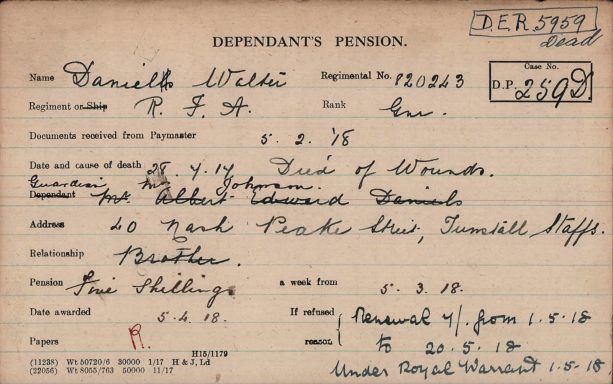 D.E.R. 5959
Dead
DEPENDANT'S PENSION.
Name Daniels Walter Regimental No. 820243
Case No.
D.P. 259D.
Regiment or Ship R. F. A. Rank Gnr.
Documents received from Paymaster 5. 2. '18
Date and cause of death 28. 4. 17 Died of Wounds.
Guardian Mrs Johnson.
Dependant Mr Albert Edward Daniels
Address 40 Nash Peake Street, Tunstall, Staffs.
Relationship Brother.
Pension Five Shillings a week from 5. 3. 18.
Date awarded 5. 4. 18. If refused reason Renewal 7/. from 1. 5. 18
to 20. 5. 18
Under Royal Warrant 1. 5. 18
Papers R.
H15/1179
(11238) Wt 50720/6 30000 1/17 H & J, Ld
(22056) Wt 8055/763 50000 11/17